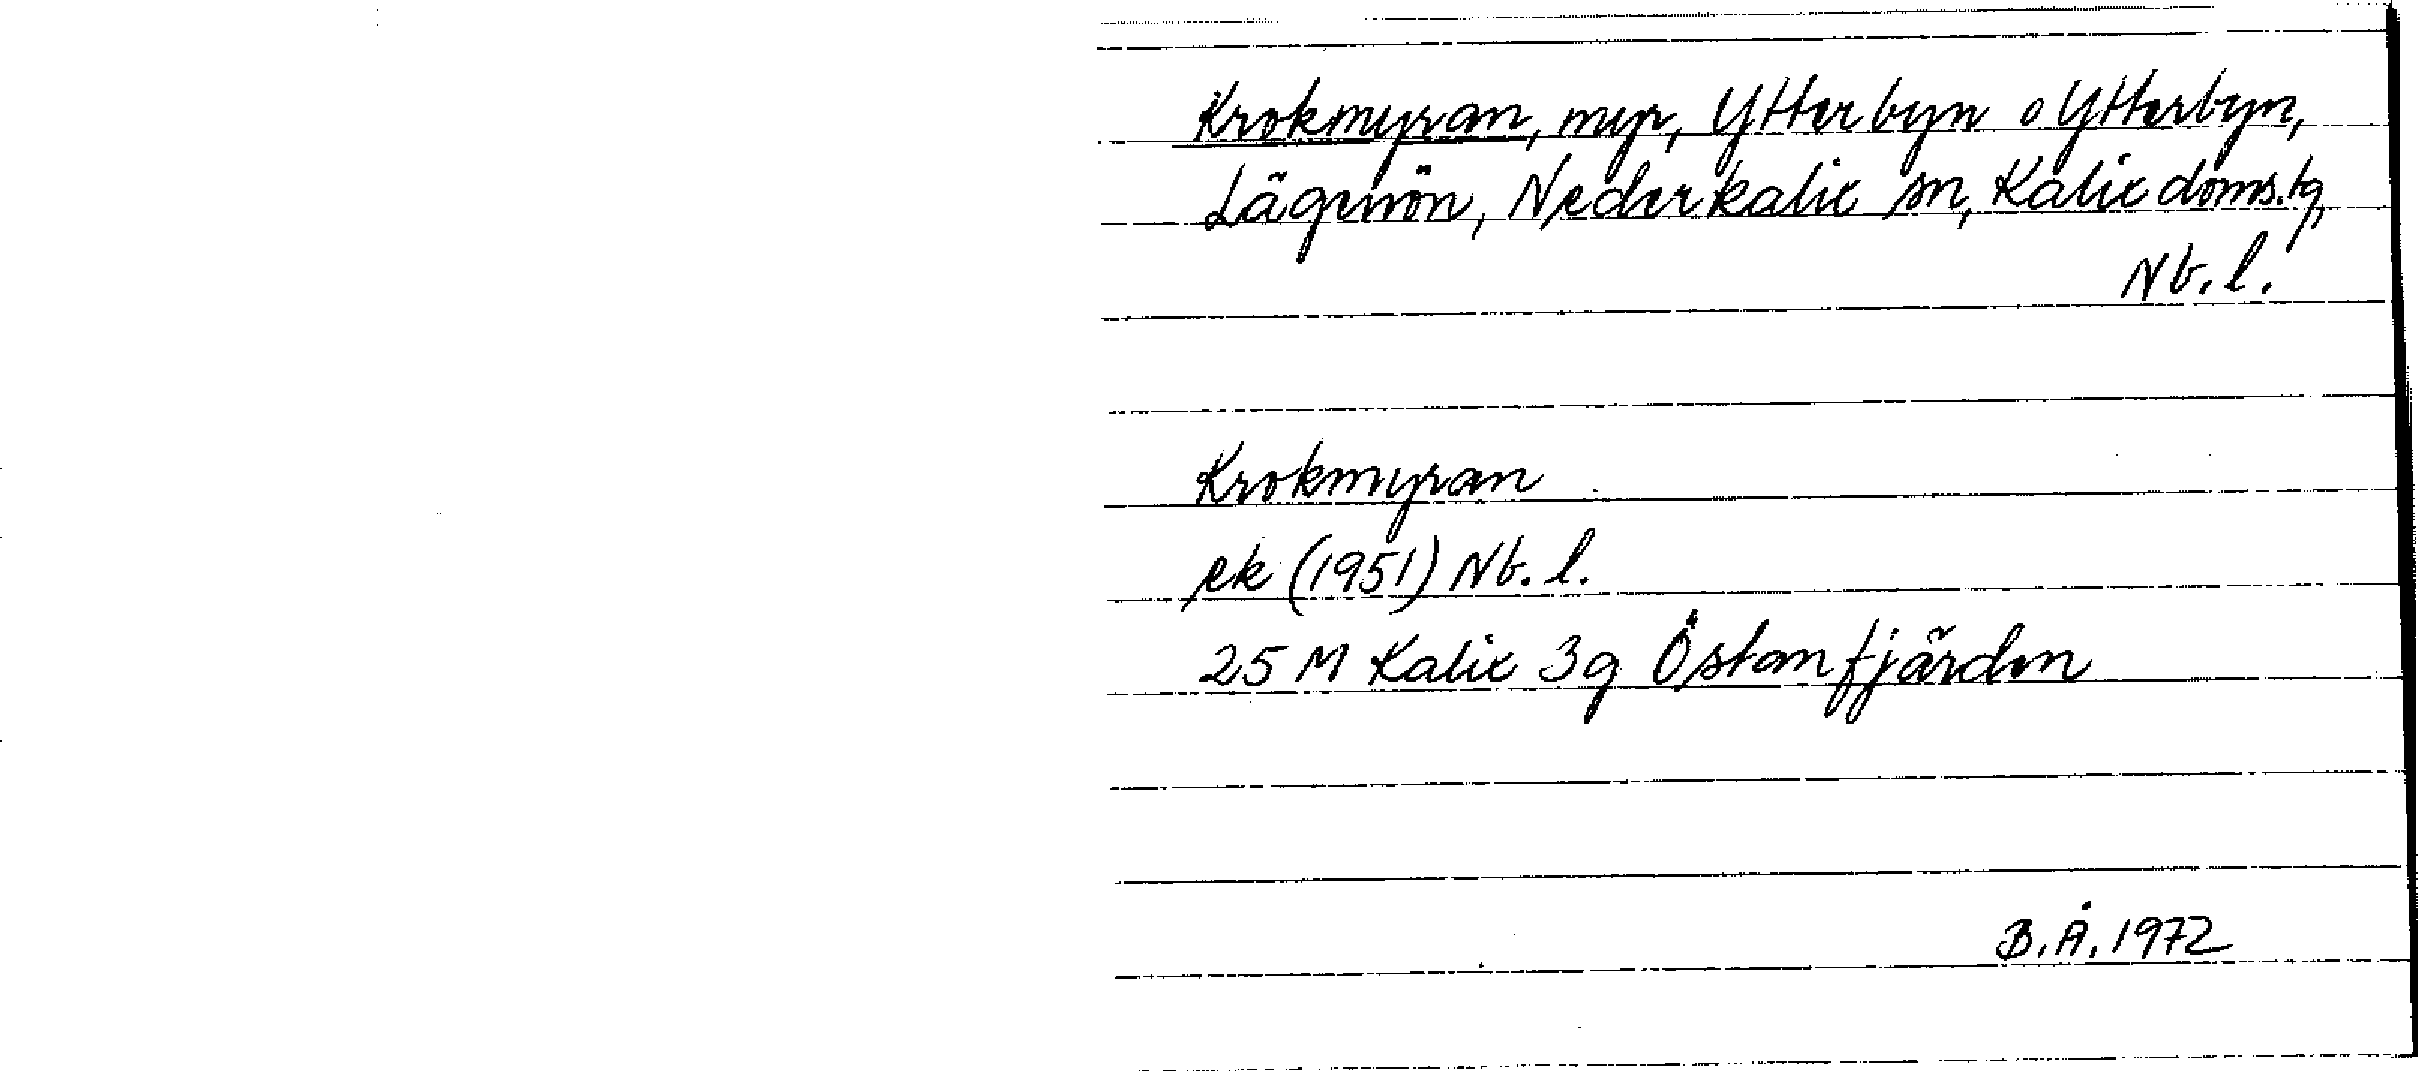 Krokmyran, myr, Ytterbyn o Ytterbyn,
Lägenön, Nederkalix sn, Kalix doms.tg,
Nb.l.
Krokmyran
ek (1951) Nb.l.
25 M Kalix 3g Östanfjärden
B.Å. 1972